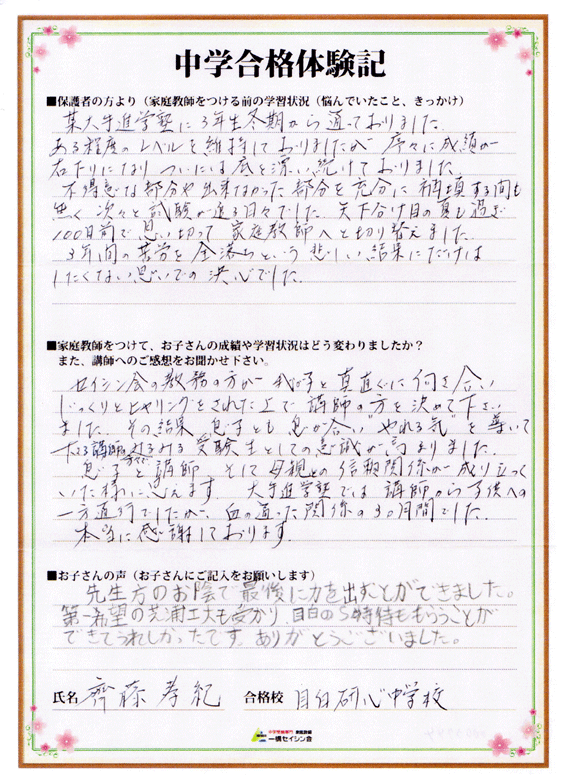 中学合格体験記
■保護者の方より（家庭教師をつける前の学習状況（悩んでいたこと、きっかけ）
某大手進学塾に3年生冬期から通っておりました。
ある程度のレベルを維持しておりましたが 序々に成績が
右下りになり ついには底を漂い続けておりました。
不得意な部分や出来なかった部分を充分に補填する間も
無く 次々と試験が迫る日々でした。天下分け目の夏も過ぎ
100日前で思い切って 家庭教師へと切り替えました。
3年間の苦労を全落ちという悲しい結果にだけは
したくない思いでの決心でした。
■家庭教師をつけて、お子さんの成績や学習状況はどう変わりましたか？
また、講師へのご感想をお聞かせ下さい。
セイシン会の教務の方が 我が子と真直ぐに向き合い
じっくりとヒヤリングをされた上で 講師の方を決めて下さい
ました。その結果 息子とも息が合い"やれる気"を導いて
下さる講師 みるみる受験生としての意識が高まりました。
息子と講師 そして母親との信頼関係が成り立って
いた様に思えます。 大手進学塾では 講師から子供への
一方通行でしたが、血の通った関係の90日間でした。
本当に感謝しております。
■お子さんの声（お子さんにご記入をお願いします）
先生方のお陰で最後に力を出すことができました。
第一希望の芝浦工大も受かり、目白のS特待ももらうことが
できてうれしかったです。ありがとうございました。
氏名 齊藤孝紀 合格校 目白研心中学校
中学受験専門 家庭教師
一橋セイシン会